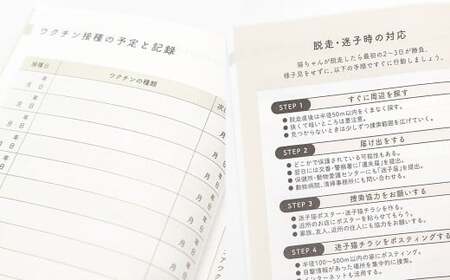 ワクチン接種の予定と記録
接種日
ワクチンの種類
次回
年
月 日
年
月 日
年
月 日
年
月 日
脱走・迷子時の対応
猫ちゃんが脱走したら最初の2~3日が勝負。
様子見をせずに、以下の手順ですぐに行動しましょう。
STEP 1
すぐに周辺を探す
● 脱走直後は半径50m以内をくまなく探す。
● 狭くて暗いところは要注意。
● 見つからないときは少しずつ捜索範囲を広げていく。
STEP 2
届け出をする
● どこかで保護されている可能性もある。
● 翌日には交番・警察署に「遺失届」を提出。
● 保健所・動物愛護センターにも「迷子届」を提出。
● 動物病院、清掃事務所にも問い合わせる。
STEP 3
捜索協力をお願いする
● 迷子猫ポスター・迷子猫チラシを作る。
● 近所のお店にポスターを貼らせてもらう。
● 家族、友人、近所の住人にも協力をお願いする。
STEP 4
迷子猫チラシをポスティングする
● 半径100~500m以内の家にポスティング。
● 目撃情報があった場所を集中的に捜索。